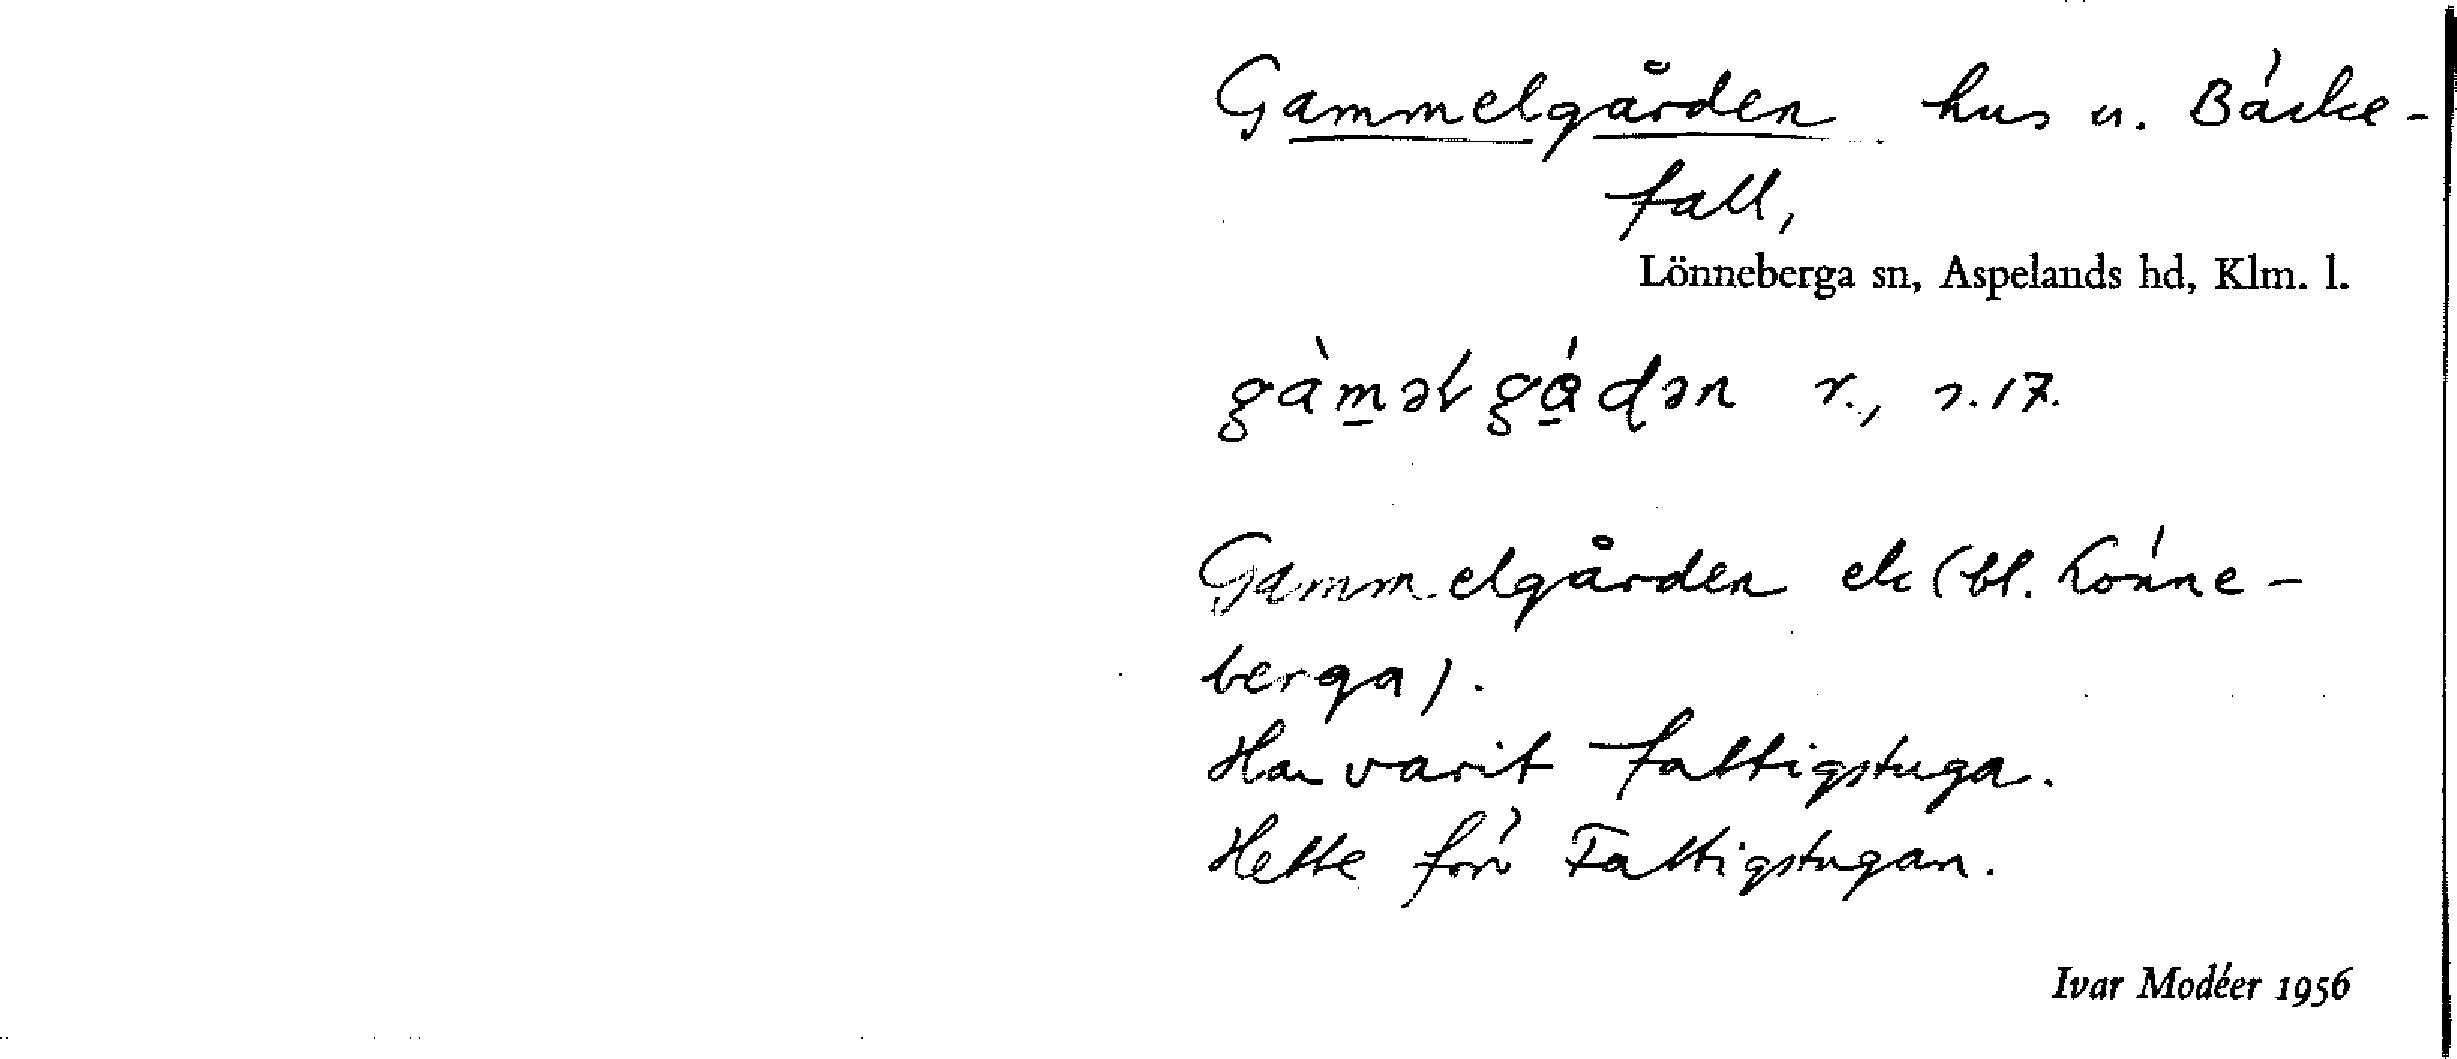 Gammelgården hus u. Bäcke-
fall,
Lönneberga sn, Aspelands hd, Klm. l.
gàm̲əƚgǻ̲ɖən r., s. 17.
Gammelgården ek (bl. Lönne-
berga).
Har varit fattigstuga.
Hette förr Fattigstugan.
Ivar Modéer 1956